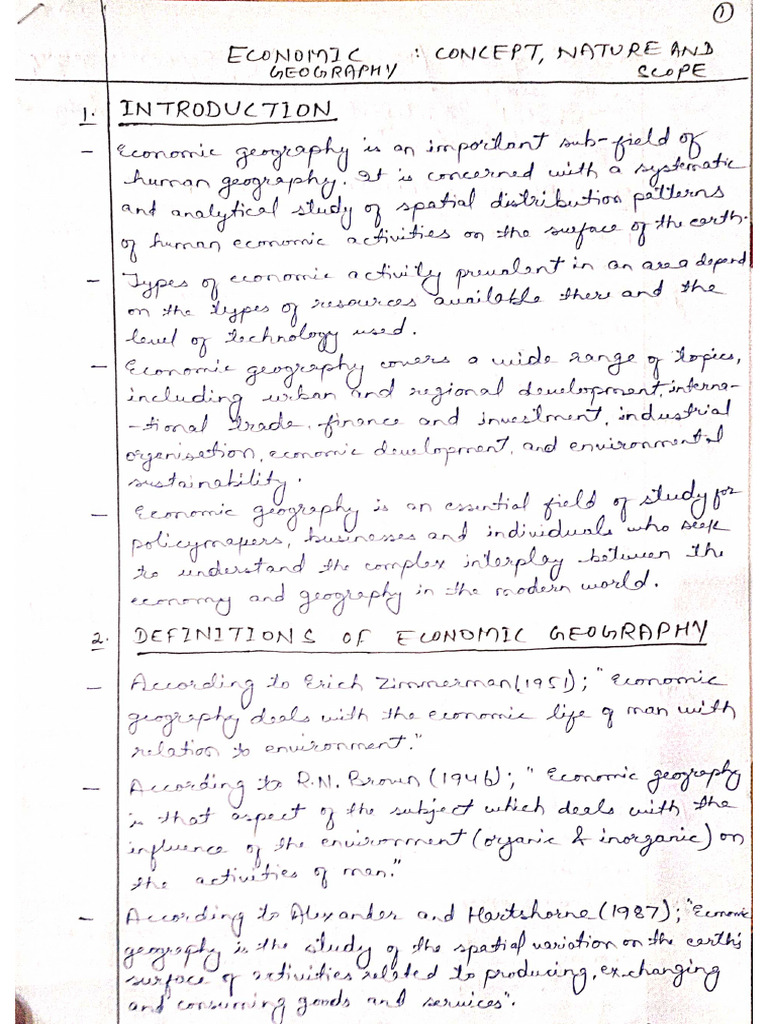 1
ECONOMIC : CONCEPT, NATURE AND
GEOGRAPHY SCOPE
1. INTRODUCTION
- Economic geography is an important sub-field of
human geography. It is concerned with a systematic
and analytical study of spatial distribution patterns
of human economic activities on the surface of the earth.
- Types of economic activity prevalent in an area depend
on the types of resources available there and the
level of technology used.
- Economic geography covers a wide range of topics,
including urban and regional development, interna-
-tional trade, finance and investment, industrial
organisation, economic development, and environmental
sustainability.
- Economic geography is an essential field of study for
policymapers, businesses and individuals who seek
to understand the complex interplay between the
economy and geography in the modern world.
2. DEFINITIONS OF ECONOMIC GEOGRAPHY
- According to Erich Zimmerman (1951); "Economic
geography deals with the economic life of man with
relation to environment."
- According to R.N. Brown (1946); "Economic geography
is that aspect of the subject which deals with the
influence of the environment (organic & inorganic) on
the activities of man."
- According to Alexander and Hartshorne (1987); "Economic
geography is the study of the spatial variation on the earth's
surface of activities related to producing, exchanging
and consuming goods and services".